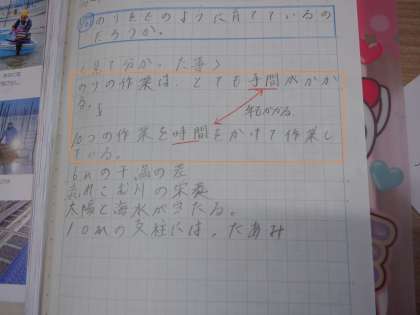 のりをどのように育てているの
だろうか。
見て分かった事
のりの作業は、とても手間がかか
る。
年もかかる。
10つの作業を時間をかけて作業し
ている。
6mの干満の差
流れこむ川の栄養
太陽と海水があたる。
10mの支柱には、たあみ